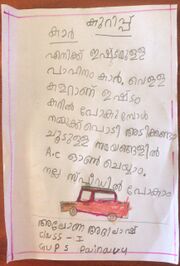 കുറിപ്പ്
കാർ
എനിക്ക് ഇഷ്ടമുള്ള
വാഹനം കാർ. വെള്ള
കളറാണ് ഇഷ്ടം
കറിൽ പോകുമ്പോൾ
നമുക്ക് പൊടി അടിക്കണ്ടാ
ചൂടുള്ള സമയങ്ങളിൽ
A.C ഓൺ ചെയ്യാം.
നല്ല സ്പീഡിൽ പോകാം
അലോണ
CLASS - I
G U P S